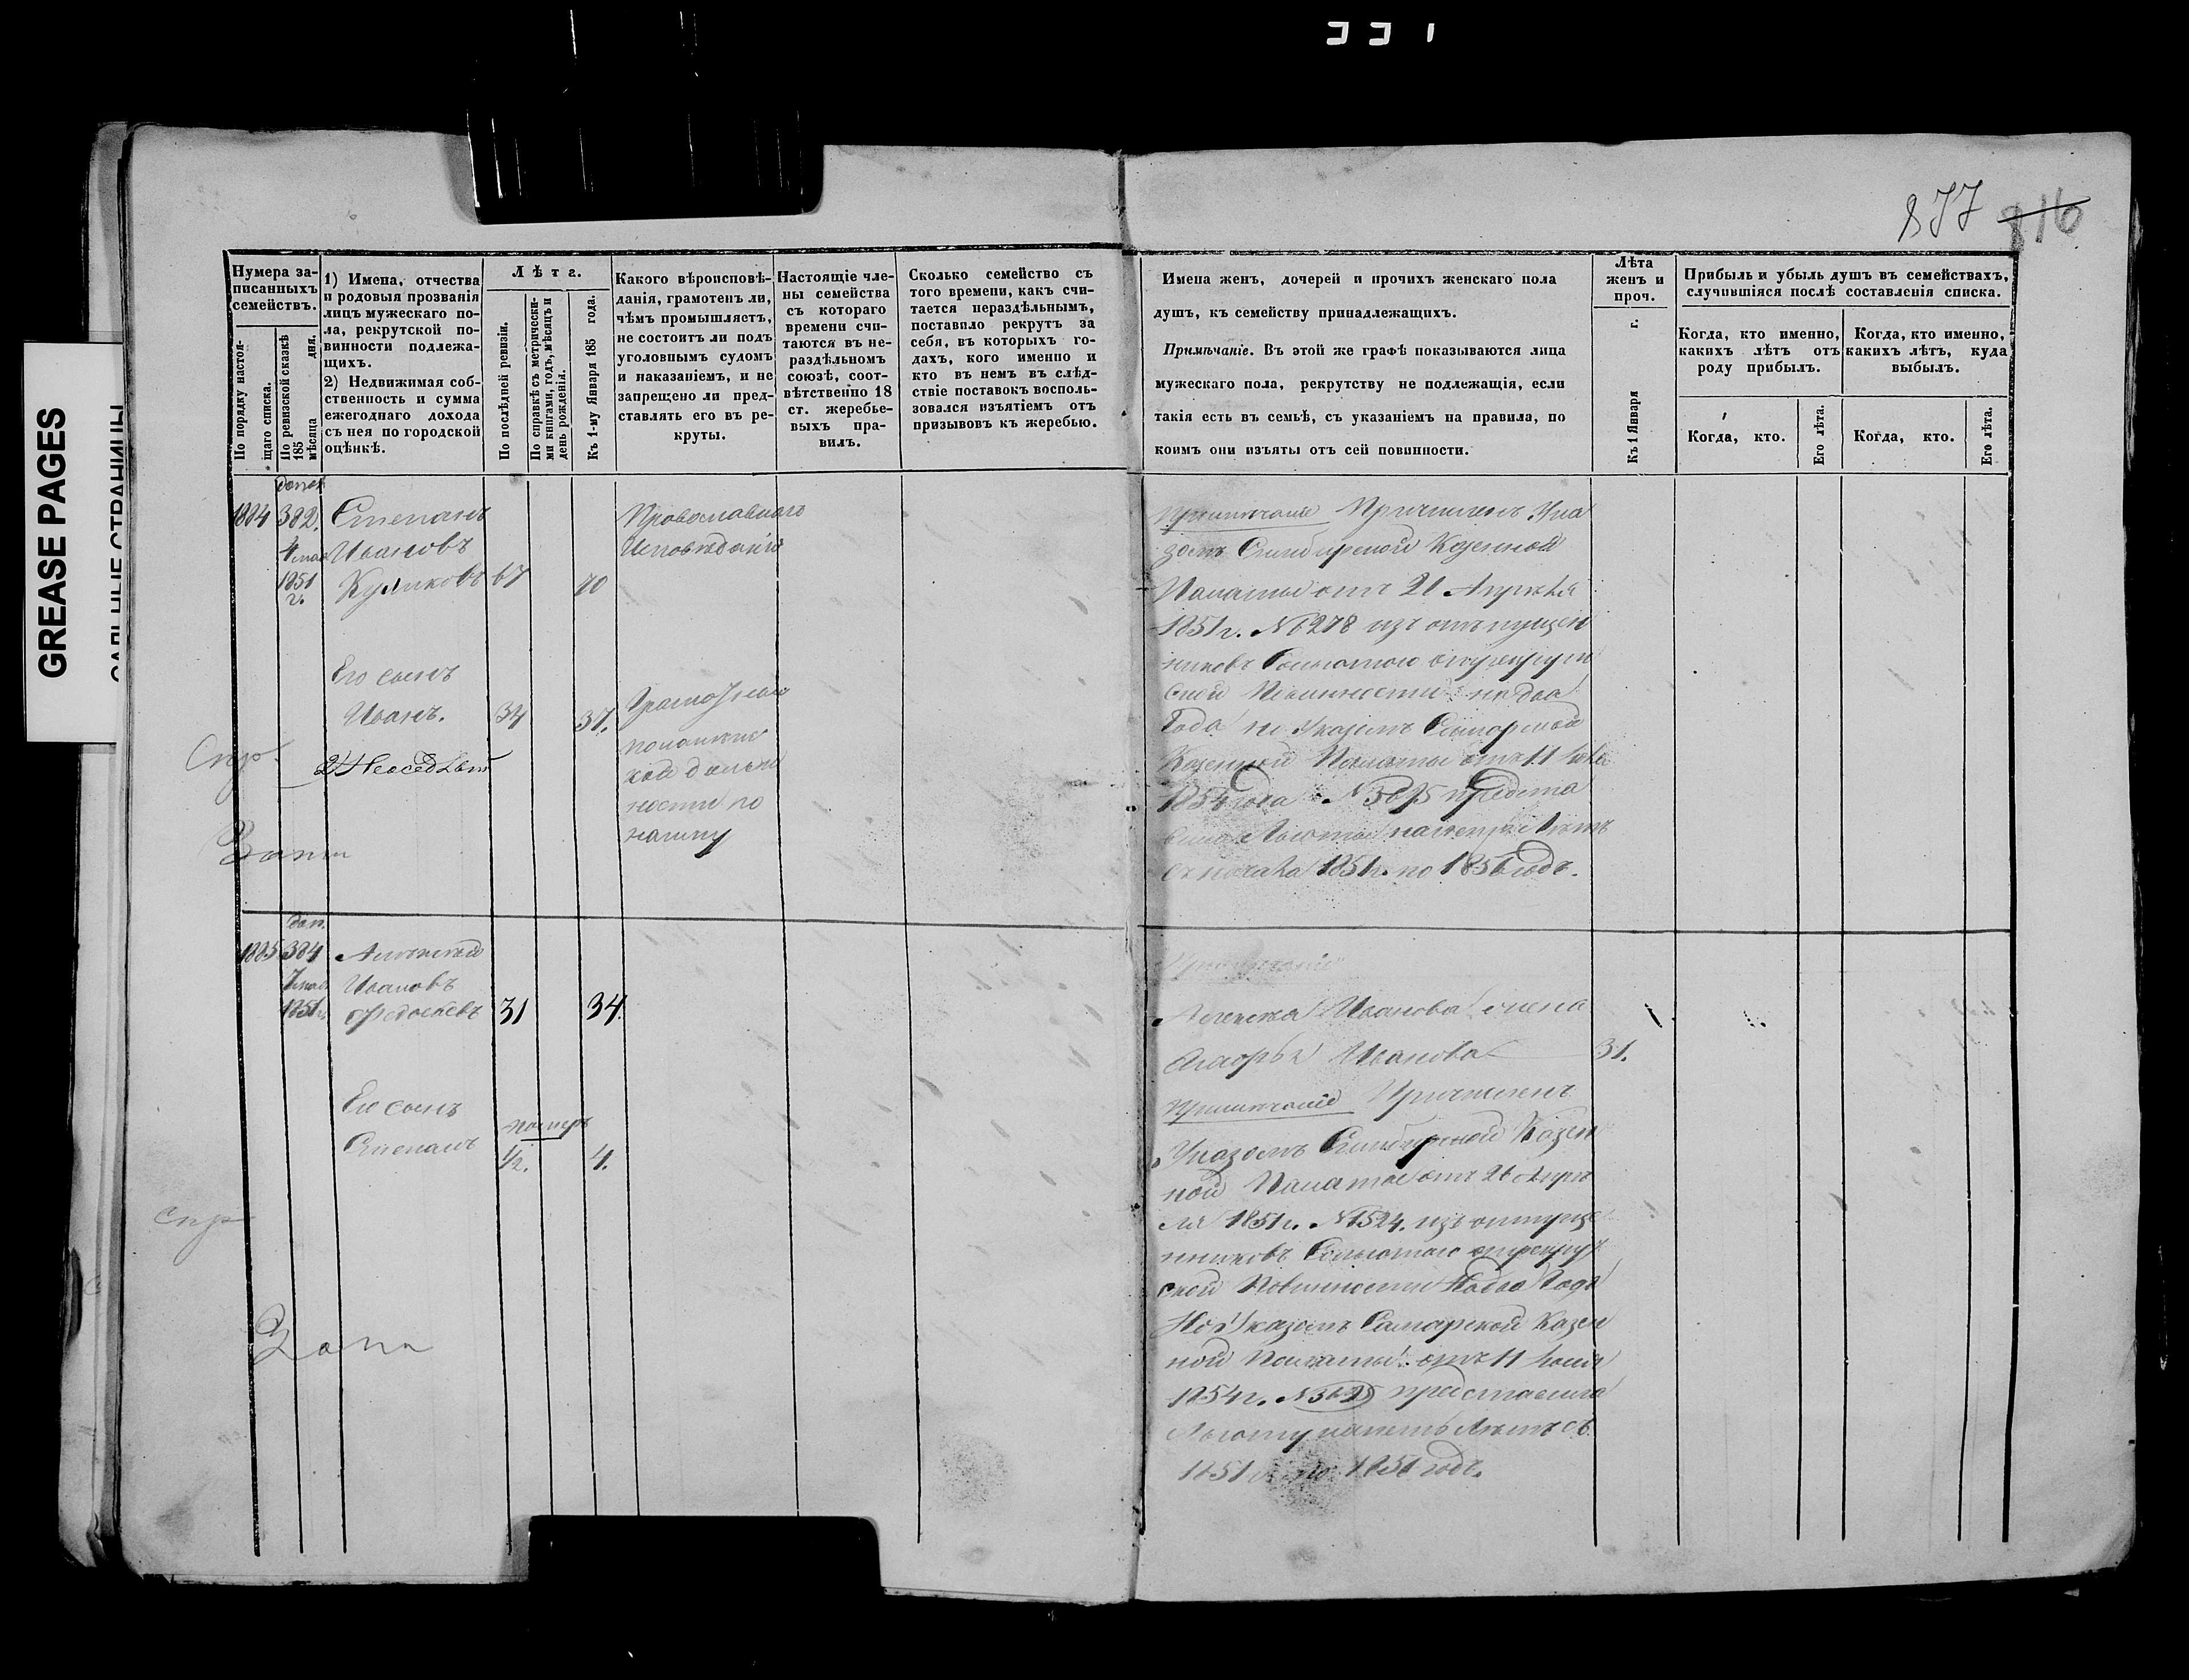 331
877 816
GREASE PAGES
САЛЬНЫЕ СТРАНИЦЫ
Нумера за-
писанныхъ
семействъ.
По порядку настоя-
щаго списка.
По ревизской сказкѣ
185 дня.
мѣсяца
1) Имена, отчества
и родовыя прозванія
лицъ мужескаго по-
ла, рекрутской по-
винности подлежа-
щихъ.
2) Недвижимая соб-
ственность и сумма
ежегоднаго дохода
съ нея по городской
оцѣнкѣ.
Лѣта.
По послѣдней ревизіи.
По справкѣ съ метрически-
ми книгами, годъ, мѣсяцъ и
день рожденія.
Къ 1-му Января 185 года.
Какого вѣроисповѣ-
данія, грамотенъ ли,
чѣмъ промышляетъ,
не состоитъ ли подъ
уголовнымъ судомъ
и наказаніемъ, и не
запрещено ли пред-
ставлять его въ ре-
круты.
Настоящіе чле-
ны семейства
съ котораго
времени счи-
таются въ не-
раздѣльномъ
союзѣ, соот-
вѣтственно 18
ст. жеребье-
выхъ пра-
вилъ.
Сколько семейство съ
того времени, какъ счи-
тается нераздѣльнымъ,
поставило рекрутъ за
себя, въ которыхъ го-
дахъ, кого именно и
кто въ немъ въ слѣд-
ствіе поставокъ восполь-
зовался изъятіемъ отъ
призывовъ къ жеребью.
Имена женъ, дочерей и прочихъ женскаго пола
душъ, къ семейству принадлежащихъ.
Примѣчаніе. Въ этой же графѣ показываются лица
мужескаго пола, рекрутству не подлежащія, если
такія есть въ семьѣ, съ указаніемъ на правила, по
коимъ они изъяты отъ сей повинности.
Лѣта
женъ и
проч.
Къ 1 Января г.
Прибыль и убыль душъ въ семействахъ,
случившіяся послѣ составленія списка.
Когда, кто именно,
какихъ лѣтъ отъ
роду прибылъ.
Когда, кто именно,
какихъ лѣтъ, куда
выбылъ.
Когда, кто.
Его лѣта.
Когда, кто.
Его лѣта.
1884 382. Степанъ
4 мая Ивановъ
1851 г. Куликовъ 67 70
Православнаго
Исповѣданія
Его сынъ
Иванъ. 34 37.
2) Неосѣдлъ
Примѣчаніе Причисленъ Ука
зомъ Симбирской Казенной
Палаты отъ 21 Апрѣля
1851 г. №6278 изъ отпущен
никовъ Сольготою отъ рекрут
ской Повинности на два
Года но Указомъ Самарской
Казенной Палаты отъ 11 Іюня
1854 года №3675 предста
влена Льгота
съ начала 1851 г. по 1856 годъ.
Спр.
доп.
1885 384 Алексѣй
7 мая Ивановъ
1851 г. Федосѣевъ 31 34.
Алексѣя Иванова жена
Марья Иванова 31.
Его сынъ
Степанъ померъ
1/2. 4.
Примѣчаніе Причисленъ
Указомъ Симбирской Казен
ной Палаты отъ 26 Апрѣ
ля 1851 г. №1524. изъ отпуще
нниковъ Сольготою отъ рекрут
ской Повинности На два Года
Но Указомъ Самарской Казен
ной Палаты отъ 11 Іюня
1854 г. №3625 предоставлена
Льготу на пять лѣтъ съ
1851 г. по 1856 годъ.
Спр